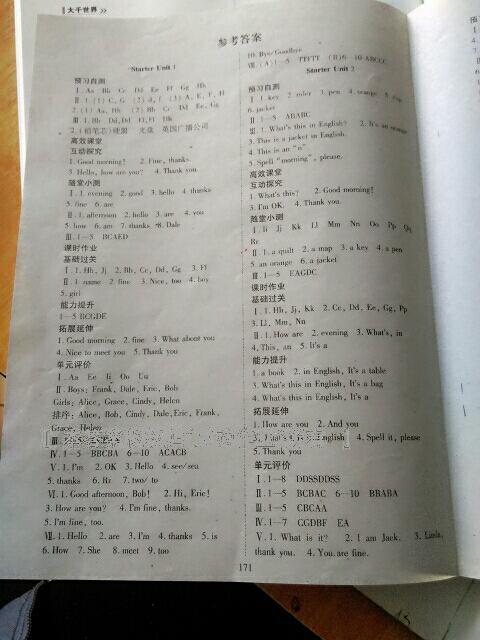 大千世界
参考答案
Starter Unit 1
预习自测
Ⅰ. Aa Bb Cc Dd Ee Ff Gg Hh
Ⅱ. 1. (1)C, G (2)d, f (3)A, E, F, H
2. (1)Aa, Hh (2)Bb Cc Dd Ee, Gg
Ⅲ. 1. Bb Dd, Dd, Ff, Ff Hh
2. (铅笔芯)硬黑 光盘 英国广播公司
高效课堂
互动探究
1. Good morning! 2. Fine, thanks.
3. Hello, how are you? 4. Thank you.
随堂小测
Ⅰ. 1. evening 2. good 3. hello 4. thanks
5. fine 6. are
Ⅱ. 1. afternoon 2. hello 3. are 4. you
5. how 6. am 7. thanks 8. Dale
Ⅲ. 1—5 BCAED
课时作业
基础过关
Ⅰ. 1. Hh, Jj 2. Cc, Dd, Gg 3. Ff
Ⅱ. 1. name 2. fine 3. Nice, too 4. boy
5. girl
能力提升
1—5 BCGDE
拓展延伸
1. Good morning 2. fine 3. What about you
4. Nice to meet you 5. Thank you
单元评价
Ⅰ. Aa Ee Ii Oo Uu
Ⅱ. Boys: Frank, Dale, Eric, Bob
Girls: Alice, Grace, Cindy, Helen
排序: Alice, Bob, Cindy, Dale, Eric, Frank,
Grace, Helen
Ⅲ. 1—5
Ⅳ. 1—5 BBCBA 6—10 ACACB
Ⅴ. 1. I'm 2. OK 3. Hello 4. see/sea
5. thanks 6. Hr 7. two/to
Ⅵ. 1. Good afternoon, Bob! 2. Hi, Eric!
3. How are you? 4. I'm fine, thanks.
5. I'm fine, too.
Ⅶ. 1. Hello 2. are 3. I'm 4. thanks 5. is
6. How 7. She 8. meet 9. too
10. Bye/Goodbye
Ⅷ. (A)1—5 TFTFT (B)6—10 ABCCC
Starter Unit 2
预习自测
Ⅰ. 1. key 2. ruler 3. pen 4. orange 5. map
6. jacket
Ⅱ. 1—5 ABABC
Ⅲ. 1. What's this in English? 2. It's an orange.
3. This is a jacket in English.
4. This is an "n".
5. Spell "morning", please.
高效课堂
互动探究
1. What's this? 2. Good morning!
3. I'm OK. 4. Thank you.
随堂小测
Ⅰ. Ii Jj Kk Ll Mm Nn Oo Pp Qq
Rr
Ⅱ. 1. a quilt 2. a map 3. a key 4. a pen
5. an orange 6. a jacket
Ⅲ. 1—5 EAGDC
课时作业
基础过关
Ⅰ. 1. Hh, Jj, Kk 2. Cc, Dd, Ee, Gg, Pp
3. Ll, Mm, Nn
Ⅱ. 1. How are 2. evening 3. What's, in
4. This, an 5. It's a
能力提升
1. a book 2. in English, It's a table
3. What's this in English, It's a bag
4. What's this in English, It's a
拓展延伸
1. How are you 2. And you
3. What's this in English 4. Spell it, please
5. Thank you
单元评价
Ⅰ. 1—8 DDSSDDSS
Ⅱ. 1—5 BCBAC 6—10 BBABA
Ⅲ. 1—5 CBCAA
Ⅳ. 1—7 CGDBF EA
Ⅴ. 1. What is it? 2. I am Jack. 3. Linda,
thank you. 4. You are fine.
171